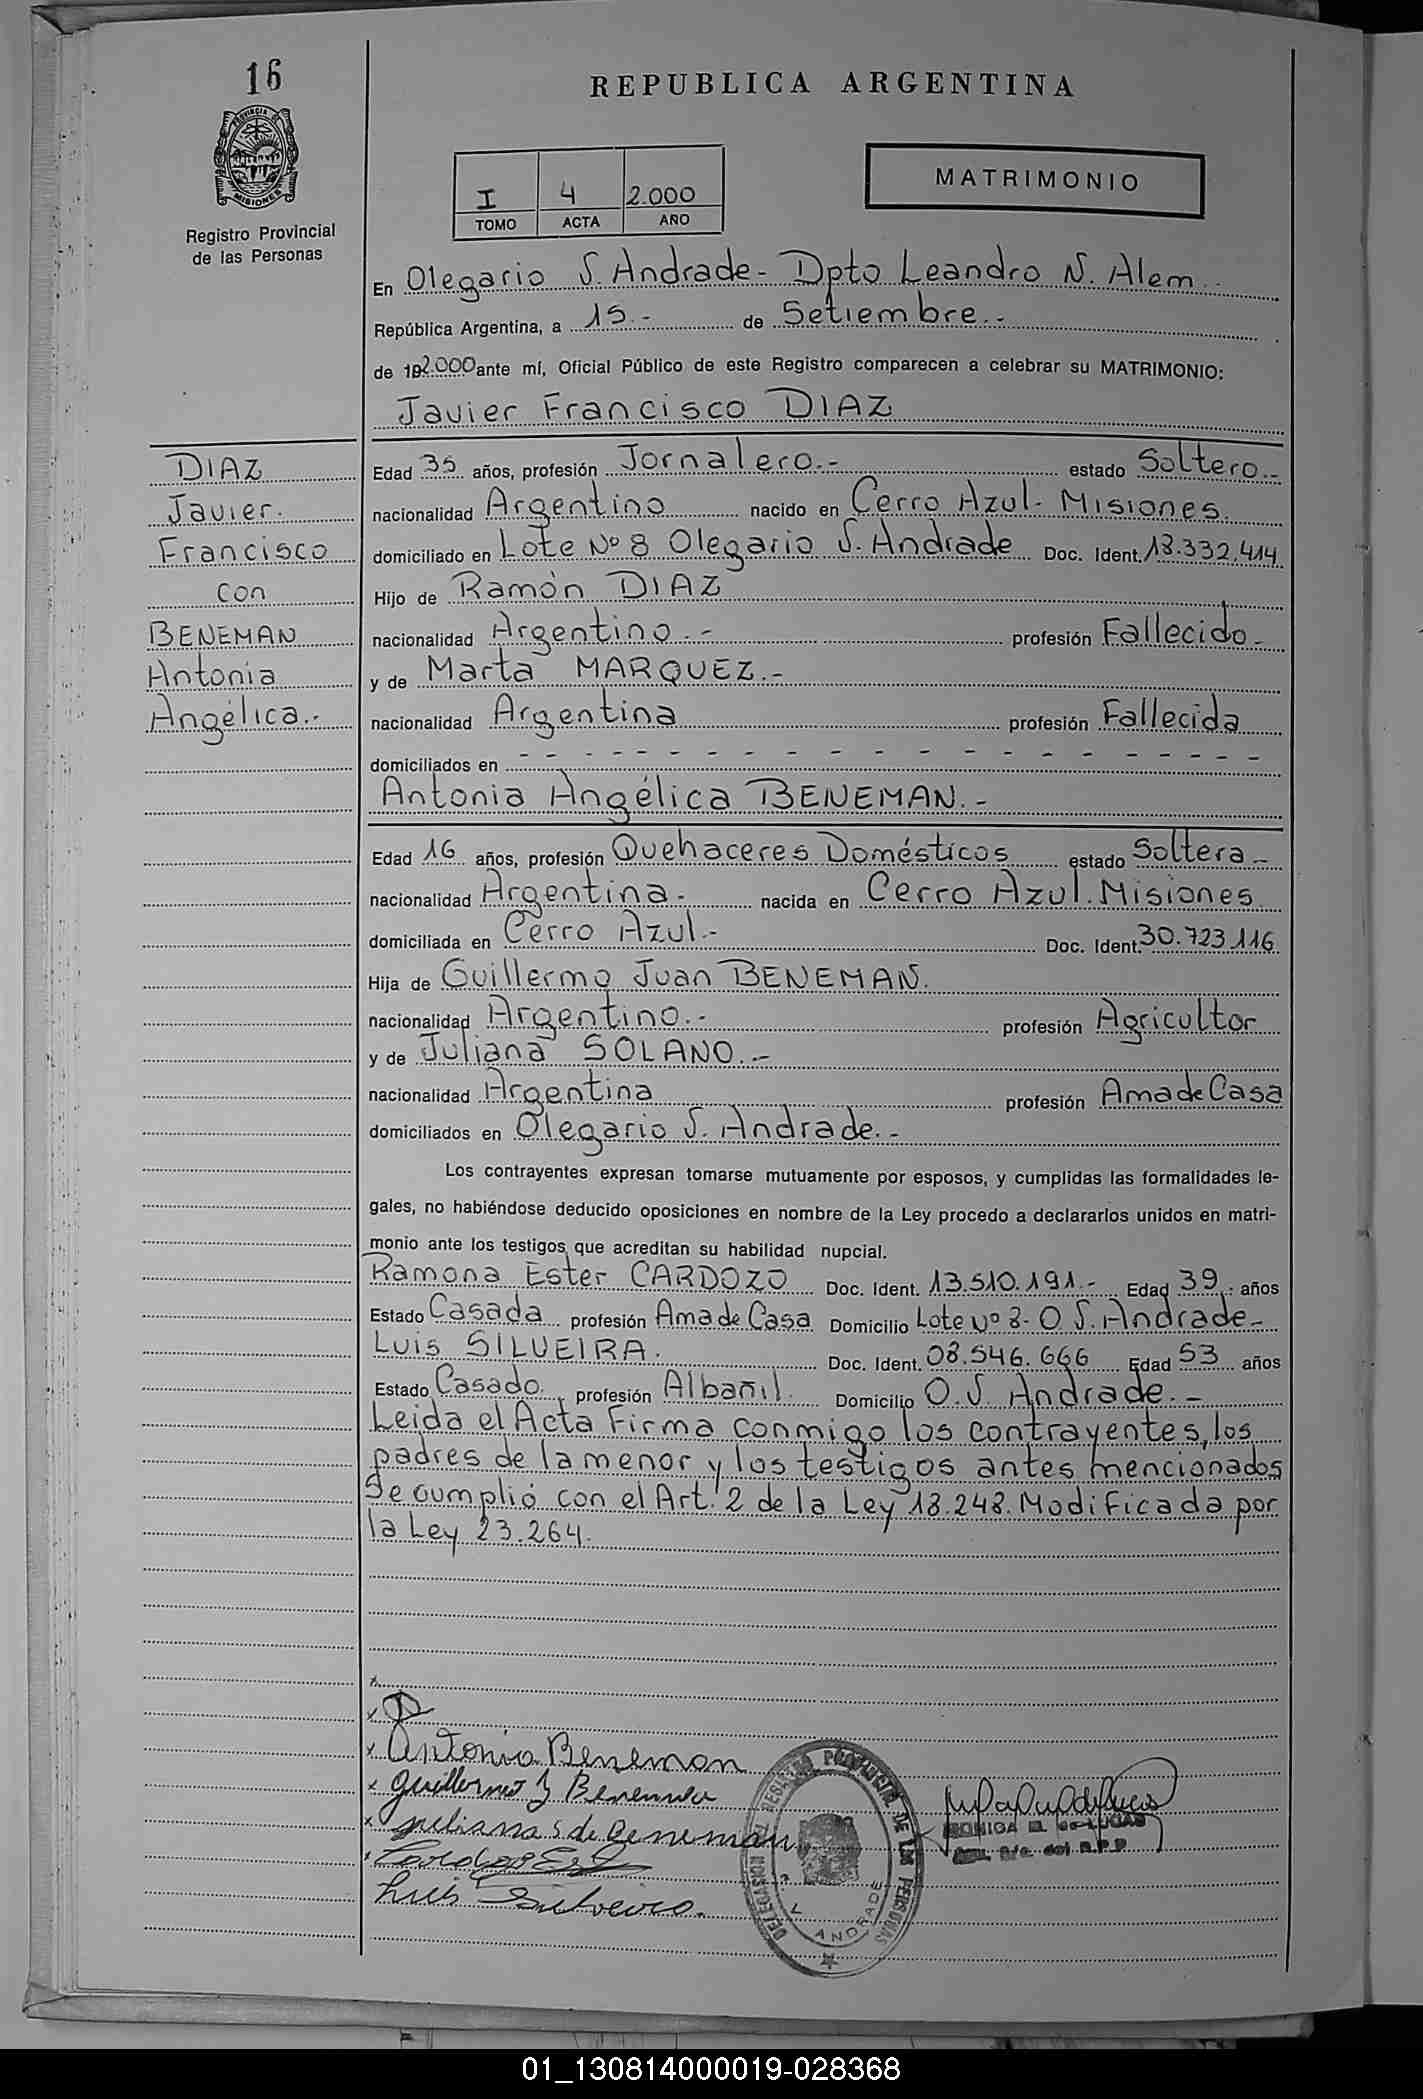 16
REPUBLICA ARGENTINA
PROVINCIA DE
MISIONES
Registro Provincial
de las Personas
I 4 2.000
TOMO ACTA AÑO
MATRIMONIO
En Olegario S. Andrade - Dpto Leandro N. Alem.-
República Argentina, a 15.- de Setiembre.-
de 192.000 ante mí, Oficial Público de este Registro comparecen a celebrar su MATRIMONIO:
Javier Francisco DIAZ
DIAZ
Javier.
Francisco
con
BENEMAN
Antonia
Angélica.-
Edad 35 años, profesión Jornalero.- estado Soltero.-
nacionalidad Argentino nacido en Cerro Azul - Misiones.
domiciliado en Lote Nº 8 Olegario S. Andrade Doc. Ident. 18.332.414
Hijo de Ramón DIAZ
nacionalidad Argentino.- profesión Fallecido-
y de Marta MARQUEZ.-
nacionalidad Argentina profesión Fallecida
domiciliados en - - - - - - - - - - - - - - - - - -
Antonia Angélica BENEMAN.-
Edad 16 años, profesión Quehaceres Domésticos estado Soltera-
nacionalidad Argentina.- nacida en Cerro Azul. Misiones
domiciliada en Cerro Azul.- Doc. Ident. 30.723.116
Hija de Guillermo Juan BENEMAN.
nacionalidad Argentino.- profesión Agricultor
y de Juliana SOLANO.-
nacionalidad Argentina profesión Ama de Casa
domiciliados en Olegario S. Andrade.-
Los contrayentes expresan tomarse mutuamente por esposos, y cumplidas las formalidades le-
gales, no habiéndose deducido oposiciones en nombre de la Ley procedo a declararlos unidos en matri-
monio ante los testigos que acreditan su habilidad nupcial.
Ramona Ester CARDOZO Doc. Ident. 13.510.191.- Edad 39 años
Estado Casada profesión Ama de Casa Domicilio Lote Nº 8- O. S. Andrade-
Luis SILVEIRA. Doc. Ident. 08.546.666 Edad 53 años
Estado Casado. profesión Albañil. Domicilio O. S. Andrade.-
Leida el Acta Firma conmigo los contrayentes, los
padres de la menor y los testigos antes mencionados
Se cumplió con el Art. 2 de la Ley 18.248. Modificada por
la Ley 23.264.
Antonia Beneman
Guillermo J Beneman
Juliana S de Beneman
Cardozo Est
Luis Silveira.
DELEGACION DEL REGISTRO PROVINCIAL DE LAS PERSONAS
ANDRADE
MONICA E. de LUCAS
R.P.P
01_130814000019-028368